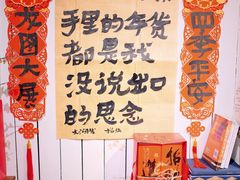 龙图大展
手里的年货
都是我
没说出口
的思念
四季平安